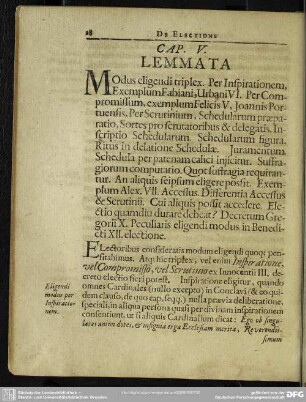 28 DE ELECTIONE
CAP. V.
LEMMATA
Modus eligendi triplex. Per Inspirationem,
Exemplum Fabiani, Urbani VI. Per Com-
promissum, exemplum Felicis V. Joannis Por-
tuensis. Per Scrutinium. Schedularum præpa-
ratio, Sortes pro scrutatoribus & delegatis. In-
scriptio Schedularum. Schedularum figura.
Ritus in delatione Schedulæ. Juramentum.
Schedula per patenam calici injicitur. Suffra-
giorum computatio. Quot suffragia requiran-
tur. An aliquis seipsum eligere possit. Exem-
plum Alex. VII. Accessus. Differentia Accessus
& Scrutinii. Cui aliquis possit accedere. Ele-
ctio quamdiu durare debeat? Decretum Gre-
gorii X. Peculiaris eligendi modus in Benedi-
cti XII. electione.
Electoribus consideratis modum eligendi quoqꝫ pen-
sitabimus. Atq; hic triplex, vel enim Inspiratione,
vel Compromisso, vel Scrutinio ex Innocentii III. de-
creto electio fieri potest. Inspiratione eligitur, quando
omnes Cardinales (nullo excepto) in Conclavi (& eo qui-
dem clauso, de quo cap. seqq.) nulla prævia deliberatione,
speciali, in aliqua persona quasi per divinam inspirationem
consentiunt, ut si aliquis Cardinalium dicat: Ego ob singu-
lares animi dotes, & insignia erga Ecclesiam merita, Reverendis-
simum
Eligendi
modus per
Inspiratio-
nem.